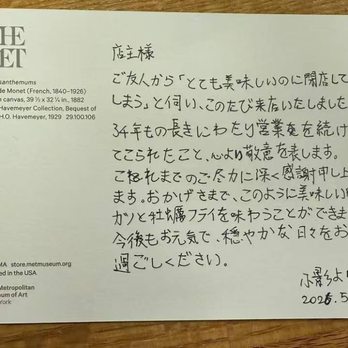 THE
MET
santhemums
de Monet (French, 1840–1926)
n canvas, 39 ½ x 32 ¼ in., 1882
Havemeyer Collection, Bequest of
H.O. Havemeyer, 1929 29.100.106
店主様
ご友人から「とても美味しいのに閉店して
しまう」と伺い、このたび来店いたしました
34年もの長きにわたり営業を続け
てこられたこと、心より敬意を表します。
これまでのご尽力に深く感謝申し上
ます。おかげさまで、このように美味しい
カツと牡蠣フライを味わうことができま
今後もお元気で、穏やかな日々をお
過ごしください。
より
5
MA store.metmuseum.org
ed in the USA
Metropolitan
um of Art
York